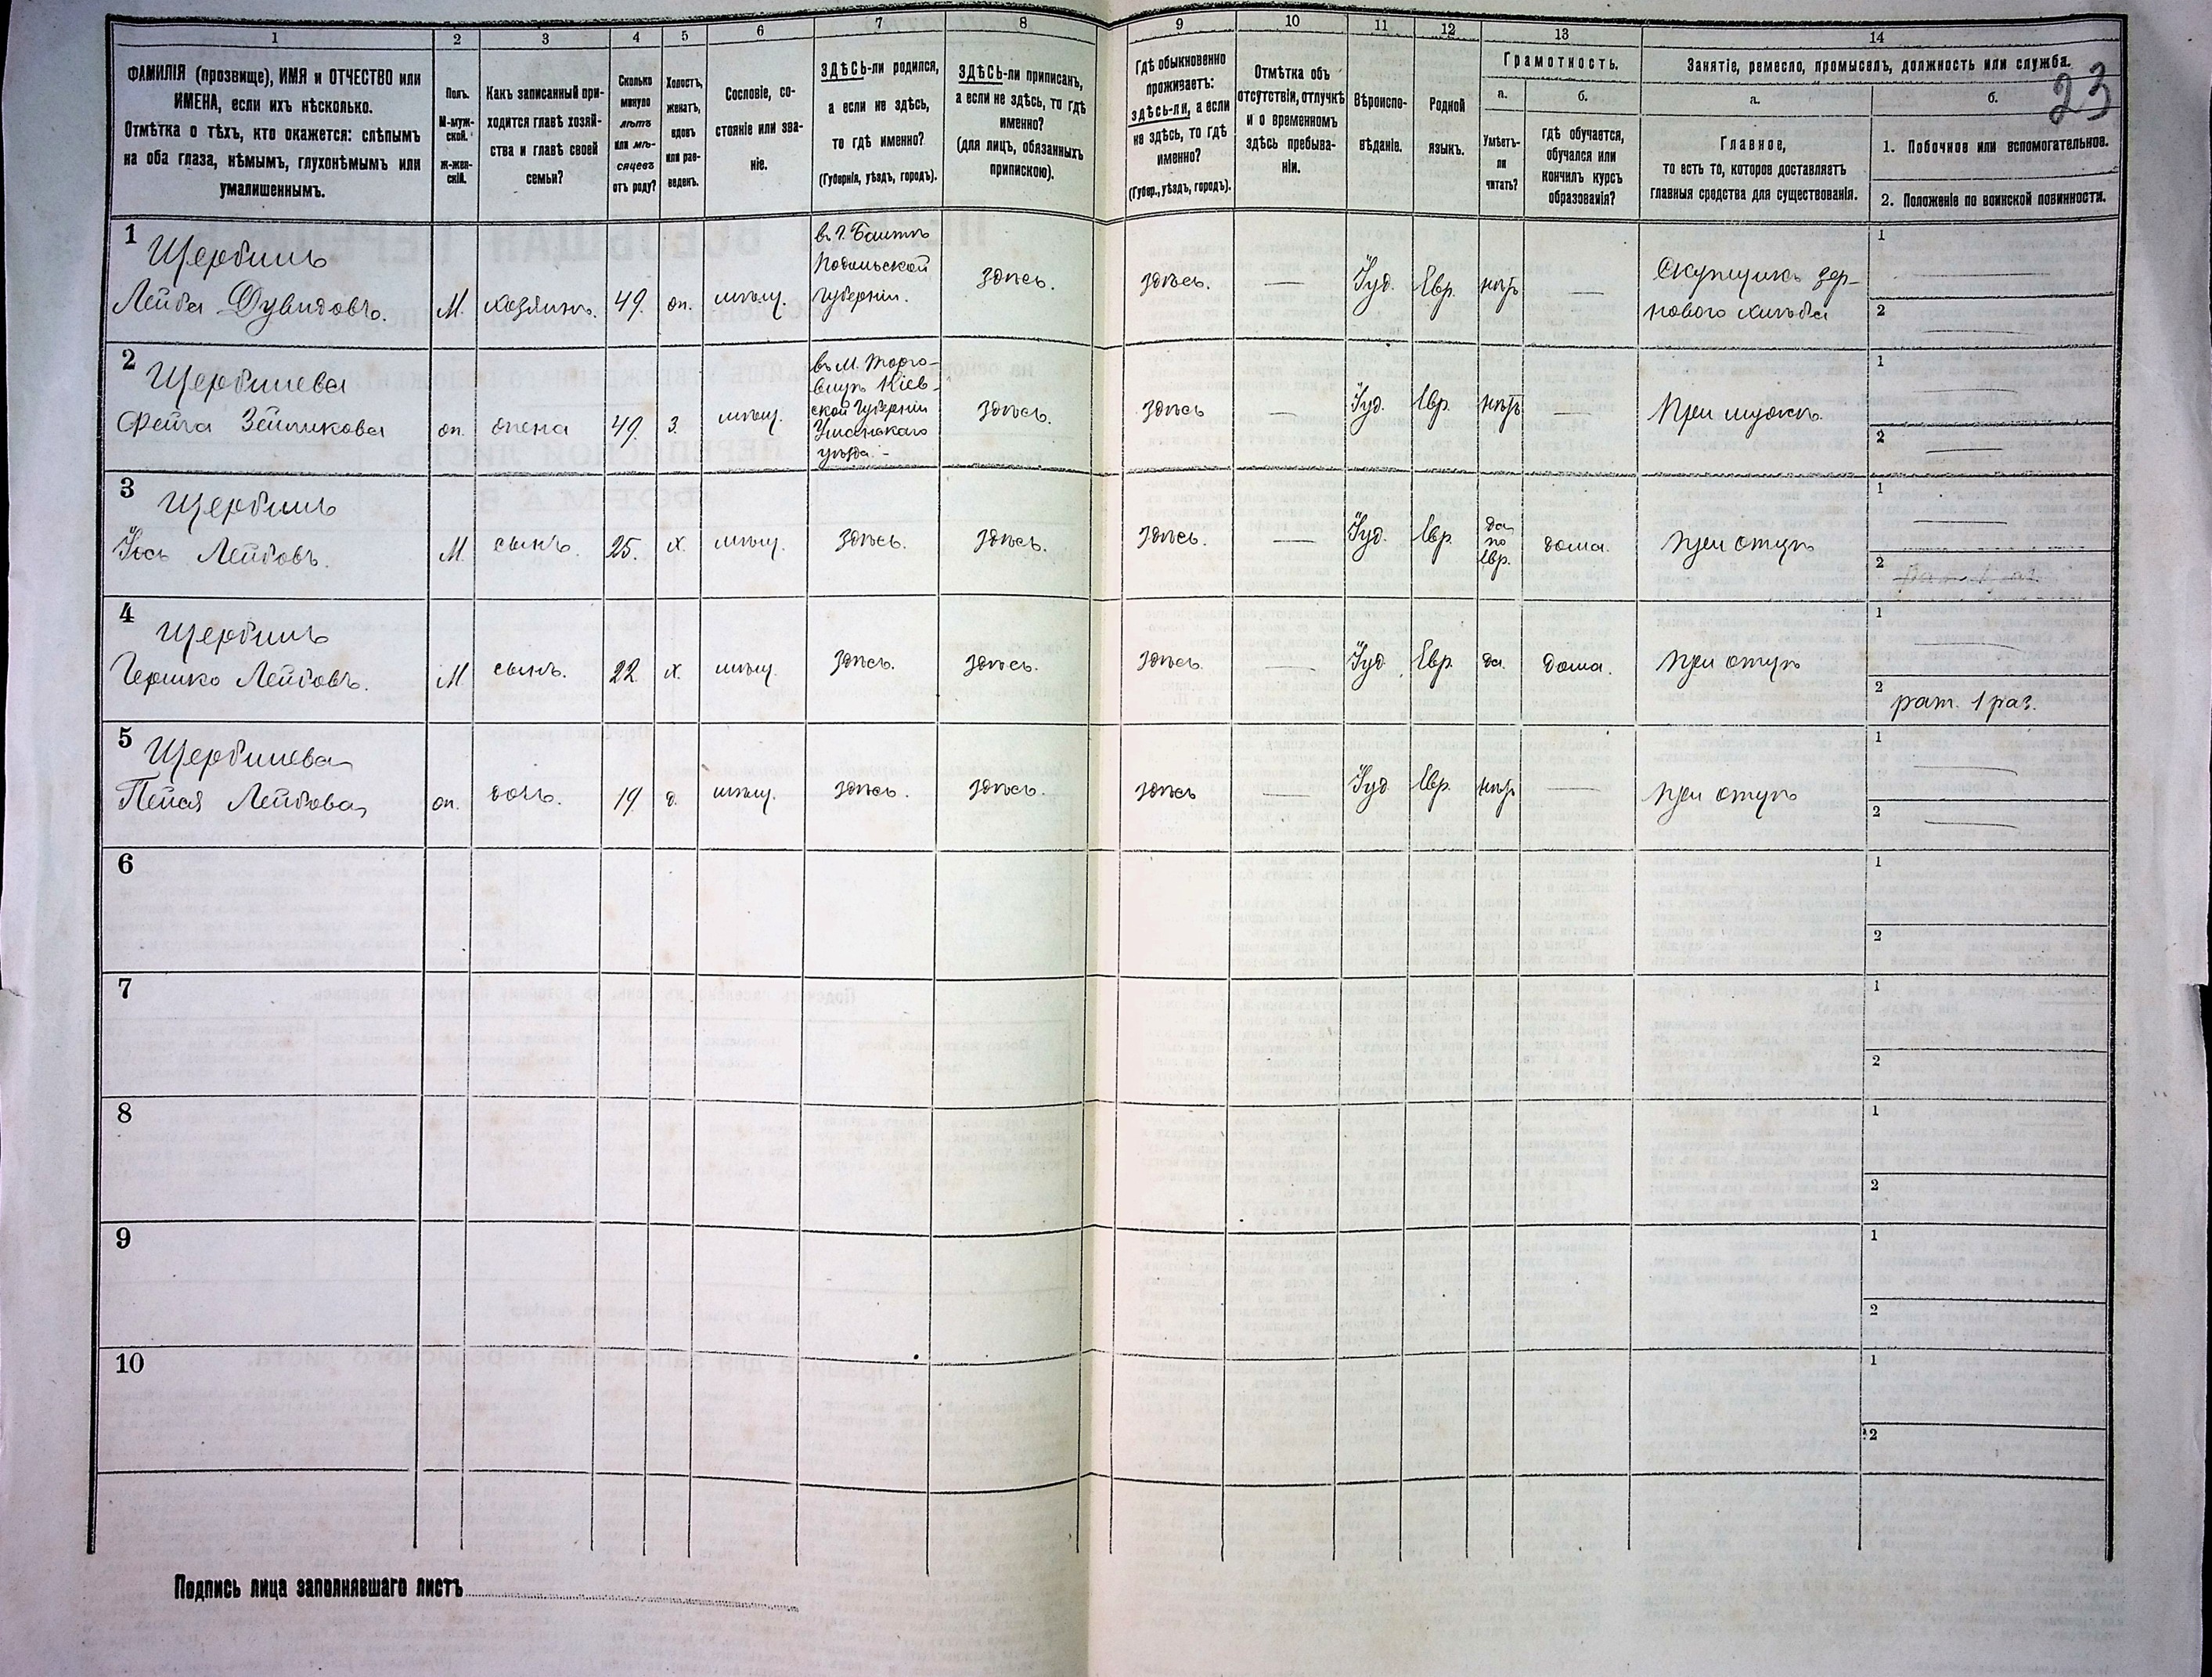 1 2 3 4 5 6 7 8 9 10 11 12 13 14
23
ФАМИЛІЯ (прозвище), ИМЯ и ОТЧЕСТВО или
ИМЕНА, если ихъ нѣсколько.
Отмѣтка о тѣхъ, кто окажется: слѣпымъ
на оба глаза, нѣмымъ, глухонѣмымъ или
умалишеннымъ.
Полъ.
М-муж-
ской.
Ж-жен-
скій.
Какъ записанный при-
ходится главѣ хозяй-
ства и главѣ своей
семьи?
Сколько
минуло
лѣтъ
или мѣ-
сяцевъ
отъ роду?
Холостъ,
женатъ,
вдовъ
или раз-
веденъ.
Сословіе, со-
стояніе или зва-
ніе.
ЗДѢСЬ-ли родился,
а если не здѣсь,
то гдѣ именно?
(Губернія, уѣздъ, городъ).
ЗДѢСЬ-ли приписанъ,
а если не здѣсь, то гдѣ
именно?
(для лицъ, обязанныхъ
припискою).
Гдѣ обыкновенно
проживаетъ:
здѣсь-ли, а если
не здѣсь, то гдѣ
именно?
(Губер., уѣздъ, городъ).
Отмѣтка объ
отсутствіи, отлучкѣ
и о временномъ
здѣсь пребыва-
ніи.
Вѣроиспо-
вѣданіе.
Родной
языкъ.
Грамотность.
а.
Умѣетъ-
ли
читать?
б.
гдѣ обучается,
обучался или
кончилъ курсъ
образованія?
Занятіе, ремесло, промыселъ, должность или служба.
а.
Главное,
то есть то, которое доставляетъ
главныя средства для существованія.
б.
1. Побочное или вспомогательное.
2. Положеніе по воинской повинности.
1
Щербинъ
Лейба Дувидовъ.
М.
хозяинъ.
49.
жн.
мѣщ.
въ г. Балтѣ
Подольской
губерніи.
здѣсь.
здѣсь.
—
Іуд.
Евр.
нѣтъ
—
Скупщикъ зер-
нового хлѣба
1 —
2 —
2
Щербинева
Фейга Зейликова
жн.
жена
49.
з.
мѣщ.
въ м. Торго-
вицѣ Кіев-
ской Губерніи
Уманскаго
уѣзда.-
здѣсь.
здѣсь
—
Іуд.
Евр.
нѣтъ
—
При мужѣ.
1 —
2 —
3
Щербинъ
Іось Лейбовъ.
М
сынъ.
25.
х.
мѣщ.
здѣсь.
здѣсь.
здѣсь.
—
Іуд.
Евр.
да
по
Евр.
дома.
при отцѣ
1 —
2
4
Щербинъ
Гершко Лейбовъ.
М
сынъ.
22.
х.
мѣщ.
здѣсь.
здѣсь.
здѣсь.
—
Іуд
Евр.
да.
дома.
при отцѣ
1 —
2 рат. 1 раз.
5
Щербинева
Пейся Лейбова
жн.
дочь.
19
д.
мѣщ.
здѣсь.
здѣсь.
здѣсь
—
Іуд
Евр.
нѣтъ
—
при отцѣ
1 —
2 —
6
1
2
7
1
2
8
1
2
9
1
2
10
1
2
Подпись лица заполнявшаго листъ